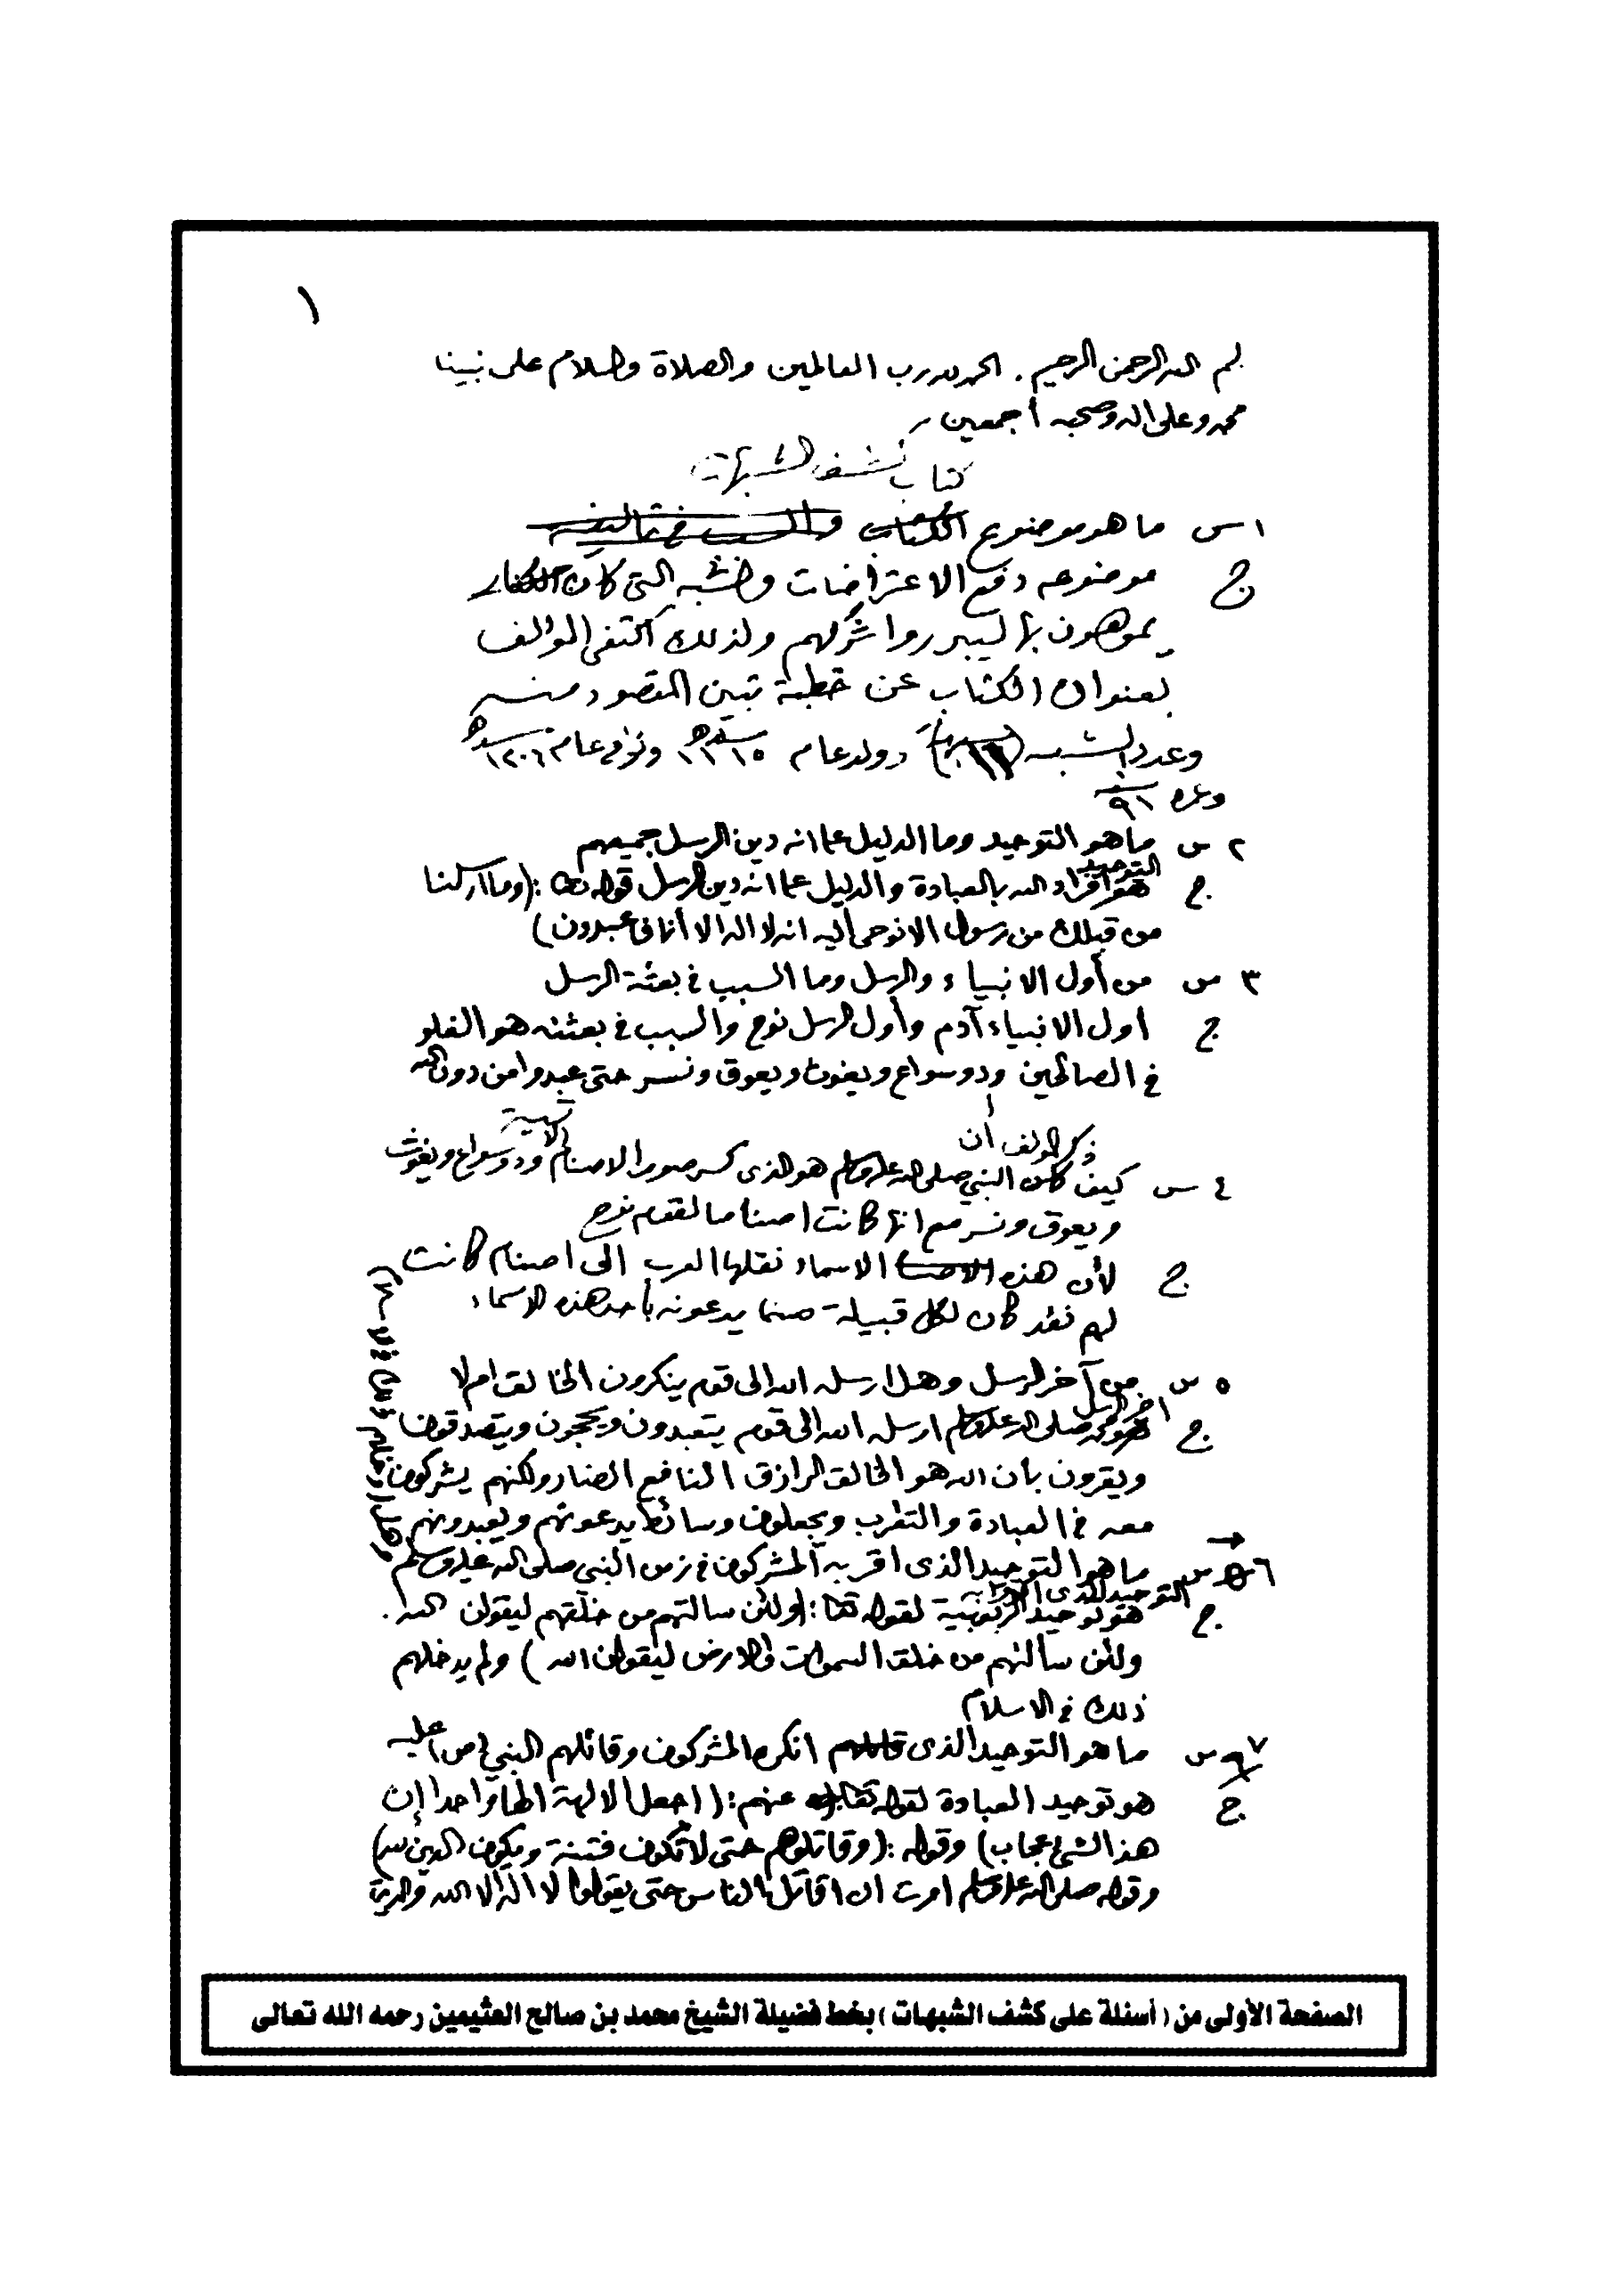 ١
بسم الله الرحمن الرحيم . الحمد لله رب العالمين والصلاة والسلام على نبينا
محمد وعلى اله وصحبه أجمعين
كتاب كشف الشبهات
١ س ما هو موضوع الكتاب والسبب في تأليفه
ج موضوعه دفع الاعتراضات والشبه التى كان الكفار
يموهون بها ليبرروا شركهم ولذلك اكتفى المؤلف
بعنوان الكتاب عن خطبة تبين المقصود منه
وعدد الشبه ولد عام ١١١٥ سنة هـ وتوفي عام ١٢٠٦ سنة هـ
وعمره ٩١ سنة
٢ س ما هو التوحيد وما الدليل على انه دين الرسل جميعهم
التوحيد
ج هو افراد الله بالعبادة والدليل على انه دين الرسل قوله تعالى :(وما ارسلنا
من قبلك من رسول الا نوحي اليه انه لا اله الا أنا فاعبدون)
٣ س من أول الانبياء والرسل وما السبب في بعثة الرسل
ج أول الانبياء آدم وأول الرسل نوح والسبب في بعثته هو الغلو
في الصالحين ود وسواع ويغوث ويعوق ونسر حتى عبدوا من دون الله
ذكر المؤلف أن
٤ س كيف كان النبي صلى الله عليه وسلم هو الذى كسر صور الاصنام الآتية ود وسواع ويغوث
ويعوق ونسر مع انها كانت اصناما لقوم نوح
ج لأن هذه الاصنا الاسماء نقلها العرب الى اصنام كانت
لهم فقد كان لكل قبيلة صنما يدعونه بأحد هذه الاسماء
٥ س من آخر الرسل وهل ارسله الله الى قوم ينكرون الخالق ام لا
اخر الرسل
ج هو محمد صلى الله عليه وسلم ارسله الله الى قوم يتعبدون ويحجون ويتصدقون
ويقرون بان الله هو الخالق الرازق النافع الضار ولكنهم يشركون
معه في العبادة والتقرب ويجعلون وسائط يدعونهم ويعبدونهم
٦ س ما هو التوحيد الذى اقر به المشركون في زمن النبي صلى الله عليه وسلم
التوحيد الذى اقروا به
ج هو توحيد الربوبية لقوله تعالى :(ولئن سالتهم من خلقهم ليقولن الله .
ولئن سألتهم من خلق السموات والارض ليقولن الله ) ولم يدخلهم
ذلك في الاسلام
٧ س ما هو التوحيد الذى قاتلهم انكره المشركون وقاتلهم النبي (ص) عليه
ج هو توحيد العبادة لقوله تعالى عنهم :( اجعل الالهة الها واحدا إن
هذا لشيء عجاب) وقوله :( وقاتلوهم حتى لا تكون فتنة ويكون الدين لله)
وقوله صلى الله عليه وسلم امرت ان اقاتل الناس حتى يقولوا لا اله الا الله
الصفحة الأولى من ( أسئلة على كشف الشبهات ) بخط فضيلة الشيخ محمد بن صالح العثيمين رحمه الله تعالى